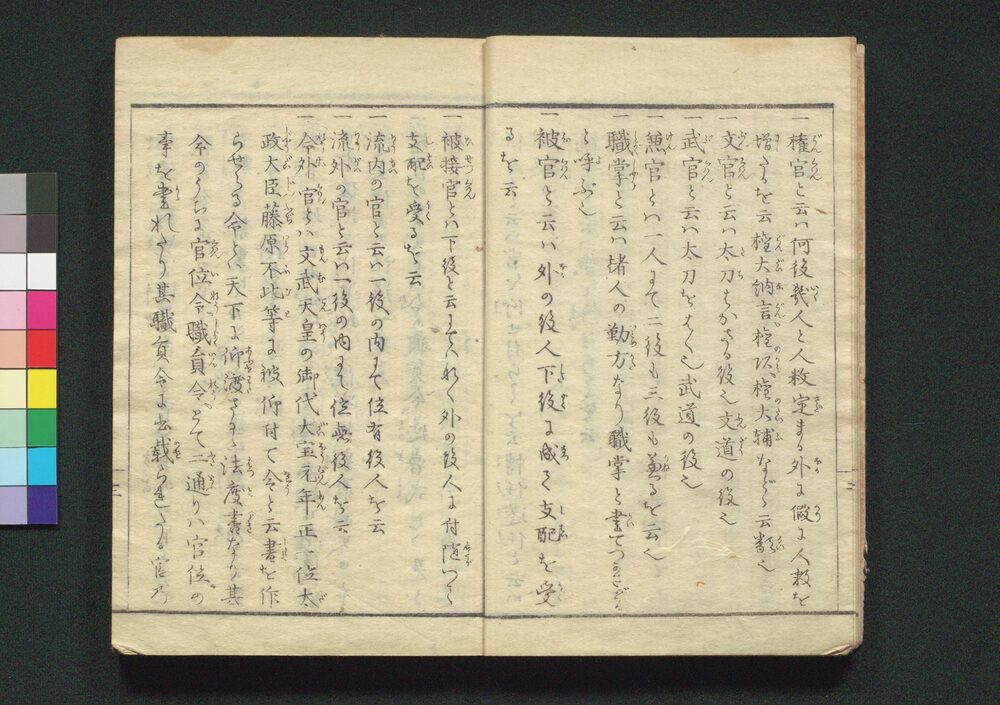 一権官と云ハ何役幾人と人数定まる外に假に人数を
増たるを云権大納言権頭権大輔など云類也
一文官と云ハ太刀はかさる役也文道の役也
一武官と云ハ太刀をはく也武道の役也
一兼官とハ一人にて二役も三役も兼るを云也
一職掌と云ハ諸人の勤方なり職掌と書てつかさどる
と呼ぶ也
一被官と云ハ外の役人下役に成て支配を受
るを云
一被接官とハ下役と云にてハなく外の役人に付随つて
支配を受るを云
一流内の官と云ハ一役の内にて位有役人を云
一流外の官と云ハ一役の内にて位無役人を云
一令外官とハ文武天皇の御代大宝元年正一位太
政大臣藤原不比等に被仰付て令と云書を作
らせらる令とハ天下に仰渡さるゝ法度書なり其
令のうちに官位令職員令とて二通りハ官位の
事を書れたり其職員令に書載られたる官乃